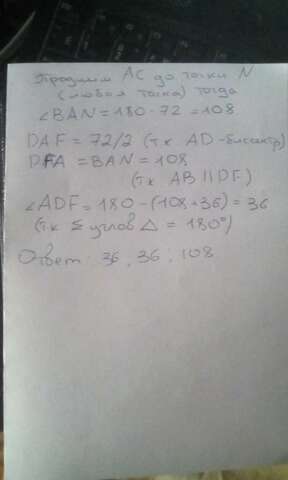 Продлим AC до точки N
(любая точка) тогда
∠BAN = 180 - 72 = 108
DAF = 72/2 (тк AD - биссектр)
DFA = BAN = 108
(тк AB || DF)
∠ADF = 180 - (108 + 36) = 36
(тк Σ углов △ = 180°)
Ответ: 36, 36, 108